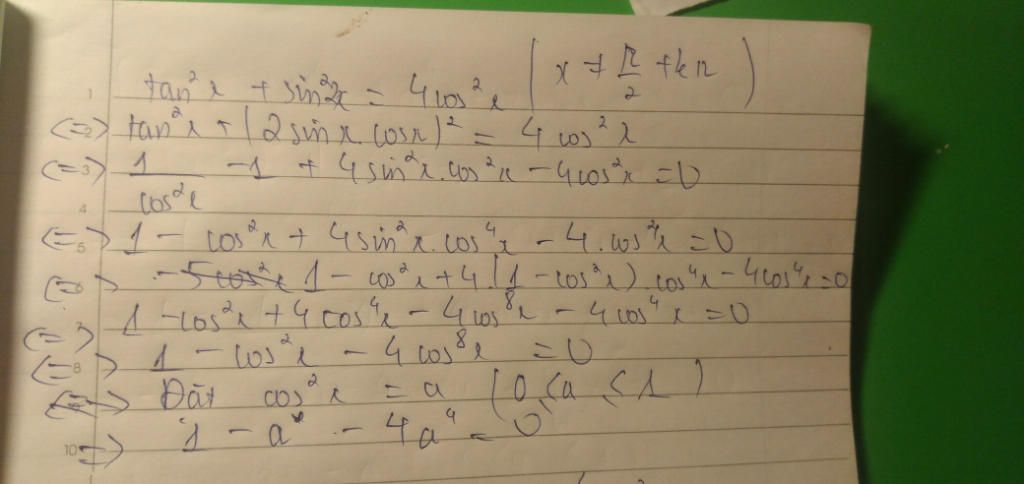 tan²x + sin²2x = 4cos²x (x ≠ π/2 + kπ)
<=> tan²x + (2sinx.cosx)² = 4cos²x
<=> 1/cos²x - 1 + 4sin²x.cos²x - 4cos²x = 0
<=> 1 - cos²x + 4sin²x.cos⁴x - 4.cos⁴x = 0
<=> 1 - cos²x + 4.(1 - cos²x).cos⁴x - 4cos⁴x = 0
<=> 1 - cos²x + 4cos⁴x - 4cos⁸x - 4cos⁴x = 0
<=> 1 - cos²x - 4cos⁸x = 0
Đặt cos²x = a (0 ≤ a ≤ 1)
=> 1 - a - 4a⁴ = 0